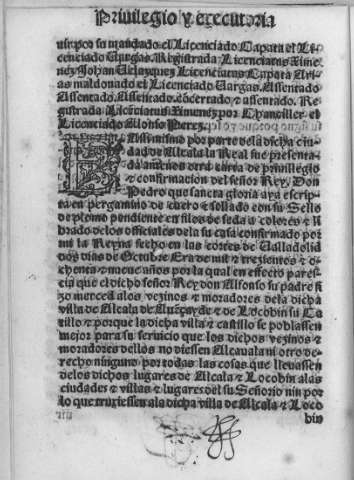 Priuilegio y executoria
uirpor su mandado el Licenciado Çapata el Li-
cenciado Vargas. Registrada Licenciatus Xime-
nez Johan Velazquez Licenciatus Çapata Ari-
as maldonado el Licenciado Vargas. Assentado
Assentado. Assentado. cõcertado ⁊ assentado. Re
gistrada Licẽciatus Ximenez por Chanciller el
Licenciado Alonso Perez.
Assimismo por parte dela dicha ciu
dad de Alcala la Real fue presenta
da ante nos otra carta de priuillegio
⁊ confirmacion del señor Rey. Don
Pedro que sancta gloria aya escrip
ta en pergamino de cuero ⁊ sellado con su Sello
de plomo pendiente en filos de seda a colores ⁊ li
brado delos officiales dela su casa confirmado por
mi la Reyna fecho en las cortes de Valladolid
dos dias de Octubre Era de mil ⁊ trezientos ⁊ o-
chenta ⁊ nueue años por la qual en effecto pares-
cia que el dicho señor Rey don Alfonso su padre fi
zo merced a los vezinos ⁊ moradores dela dicha
villa de Alcala de Auẽçayde ⁊ de Locobin su Ca
stillo ⁊ porque la dicha villa ⁊ castillo se poblassen
mejor para su seruicio que los dichos vezinos ⁊
moradores dellos no diessen Alcauala ni otro de-
recho ninguno por todas las cosas que lleuassen
delos dichos lugares de Alcala ⁊ Locobin a las
ciudades ⁊ villas ⁊ lugares del su Señorio nin por
lo que truxiessen ala dicha villa de Alcala ⁊ Loco
bin